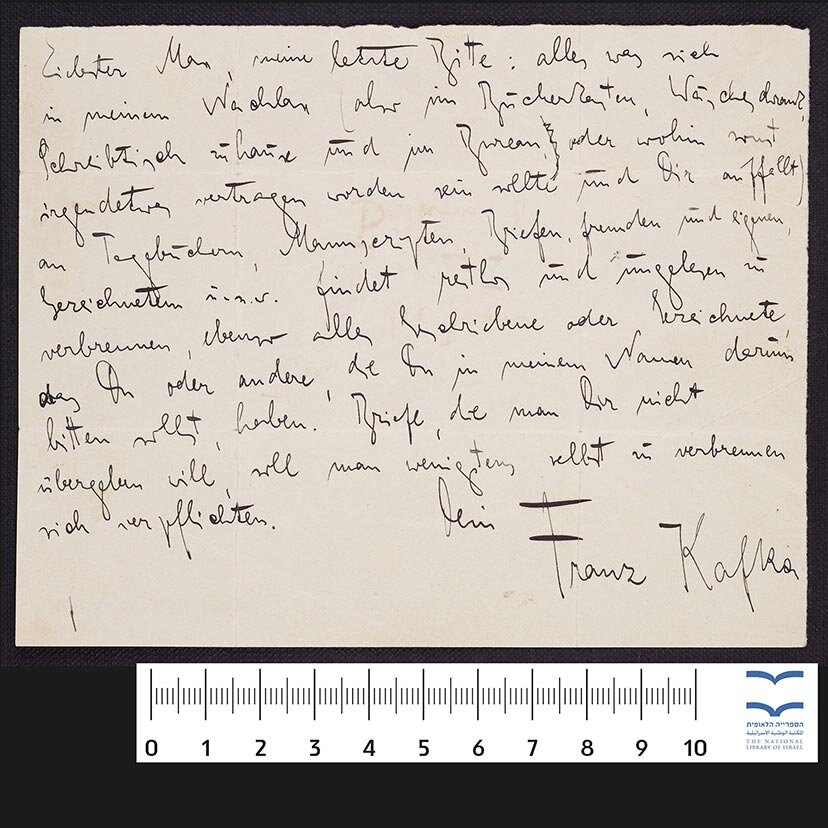 Liebster Max, meine letzte Bitte: alles was sich
in meinem Nachlass (also im Bücherkasten, Wäscheschrank,
Schreibtisch zuhause und im Bureau, oder wohin sonst
irgendetwas vertragen worden sein sollte und Dir auffällt)
an Tagebüchern, Manuscripten, Briefen, fremden und eigenen,
Gezeichnetem u.s.w. findet restlos und ungelesen zu
verbrennen, ebenso alles Geschriebene oder Gezeichnete,
das Du oder andere, die Du in meinem Namen darum
bitten sollst, haben. Briefe, die man Dir nicht
übergeben will, soll man wenigstens selbst zu verbrennen
sich verpflichten.
Dein Franz Kafka
0 1 2 3 4 5 6 7 8 9 10
הספרייה הלאומית
المكتبة الوطنية الإسرائيلية
THE NATIONAL
LIBRARY OF ISRAEL